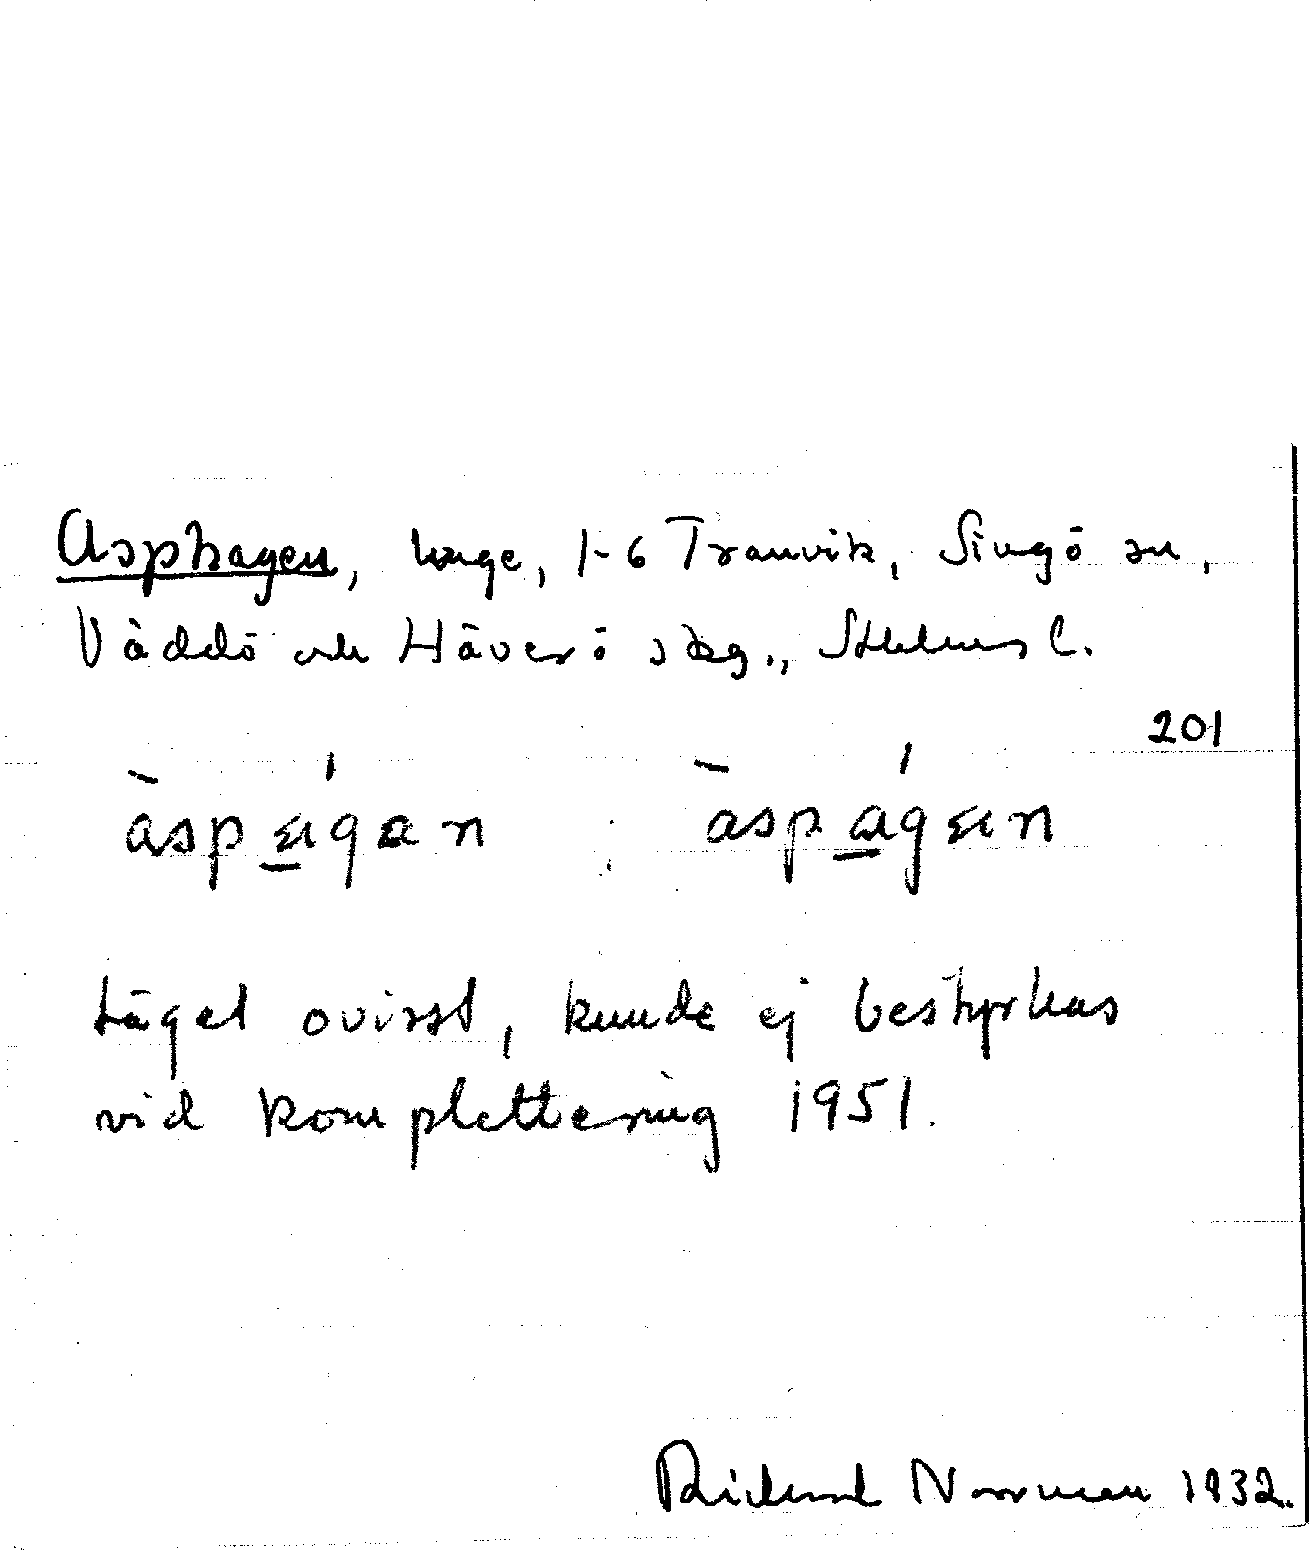 Asphagen, hage, 1-6 Tranvik, Singö sn,
Väddö och Häverö skg., Sthlms l.
201
àspágan : àspágan
Läget ovisst, kunde ej bestyrkas
vid komplettering 1951.
Rickard Norrman 1932.